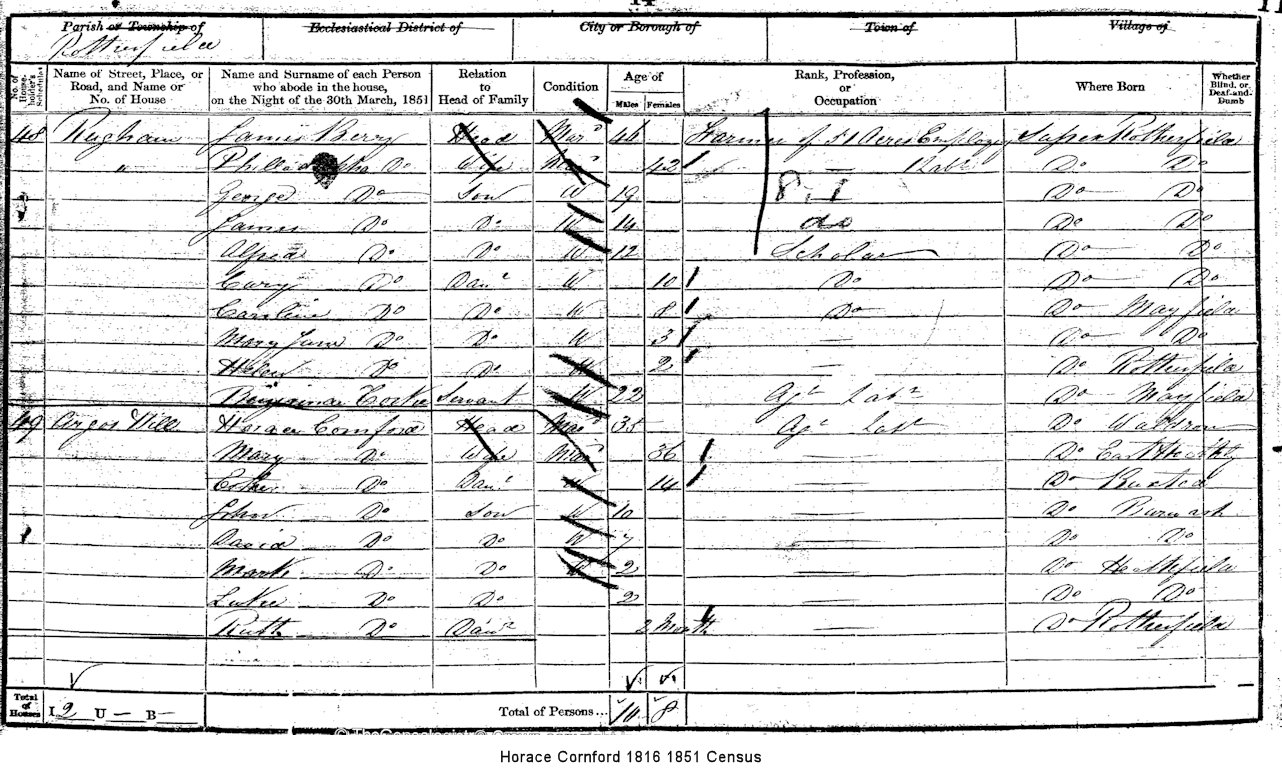 14
Parish or Township of Ecclesiastical District of City or Borough of Town of Village of
Rotherfield
No. of House-holder's Schedule Name of Street, Place, or Road, and Name or No. of House Name and Surname of each Person who abode in the house, on the Night of the 30th March, 1851 Relation to Head of Family Condition Age of Males Females Rank, Profession, or Occupation Where Born Whether Blind, or Deaf-and-Dumb
48 James Berry Head Mar 44 Farmer of 51 Acres Employing Sussex Rotherfield
" Do Wife Mar 42 1 Labr Do Do
George Do Son U 19 Do Do
James Do Do U 14 do Do Do
Alfred Do Do U 12 Scholar Do Do
Do Daur U 10 Do Do Do
Caroline Do Do U 8 Do Do Mayfield
Mary Jane Do Do U 3 — Do Do
Helen Do Do U 2 — Do Rotherfield
Benjamin Servant U 22 Agr Labr Do Mayfield
49 Argos Hill Horace Cornford Head Mar 35 Agr Labr Do Waldron
Mary Do Wife Mar 36 — Do
Esther Do Daur U 14 — Do Buxted
John Do Son U 10 — Do Burwash
David Do Do U 7 — Do Do
Mark Do Do U 2 — Do Heathfield
Luke Do Do 2 — Do Do
Ruth Do Daur 2 Month — Do Rotherfield
Total of Houses I 2 U — B — Total of Persons... 10 8
© TheGenealogist
Horace Cornford 1816 1851 Census